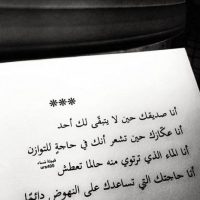 ***
أنا صديقك حين لا يتبقى لك أحد
أنا عكّازك حين تشعر أنك في حاجةٍ للتوازن
أنا الماء الذي ترتوي منه حالما تعطش
أنا حاجتك التي تساعدك على النهوض دائمًا